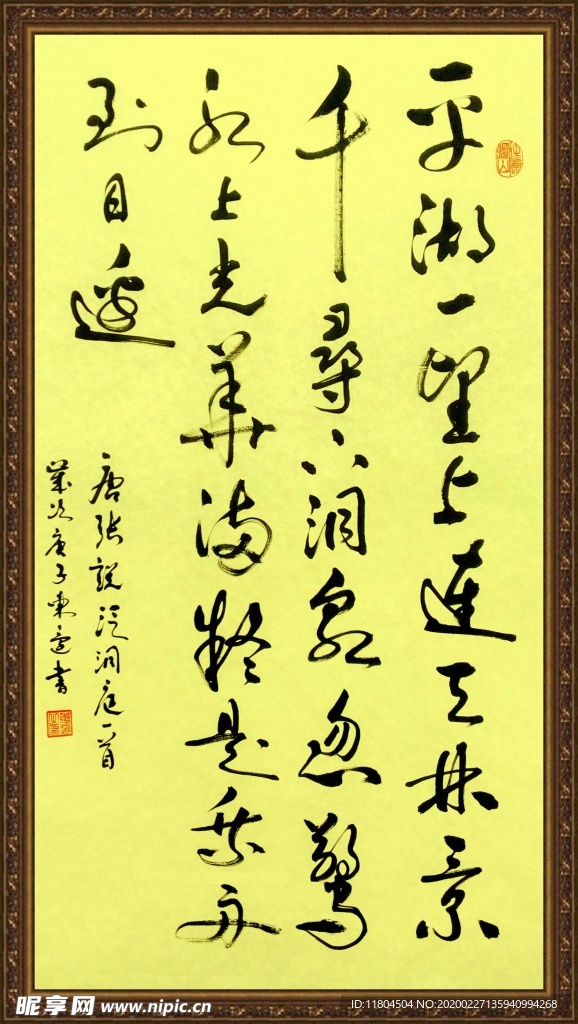 平湖一望上連天林景
千尋下洞泉忽驚
水上光華滿疑是乘舟
到日邊
唐張說泛洞庭一首
歲次庚子東書
昵享网 www.nipic.cn
ID:11804504 NO:20200227135940994268